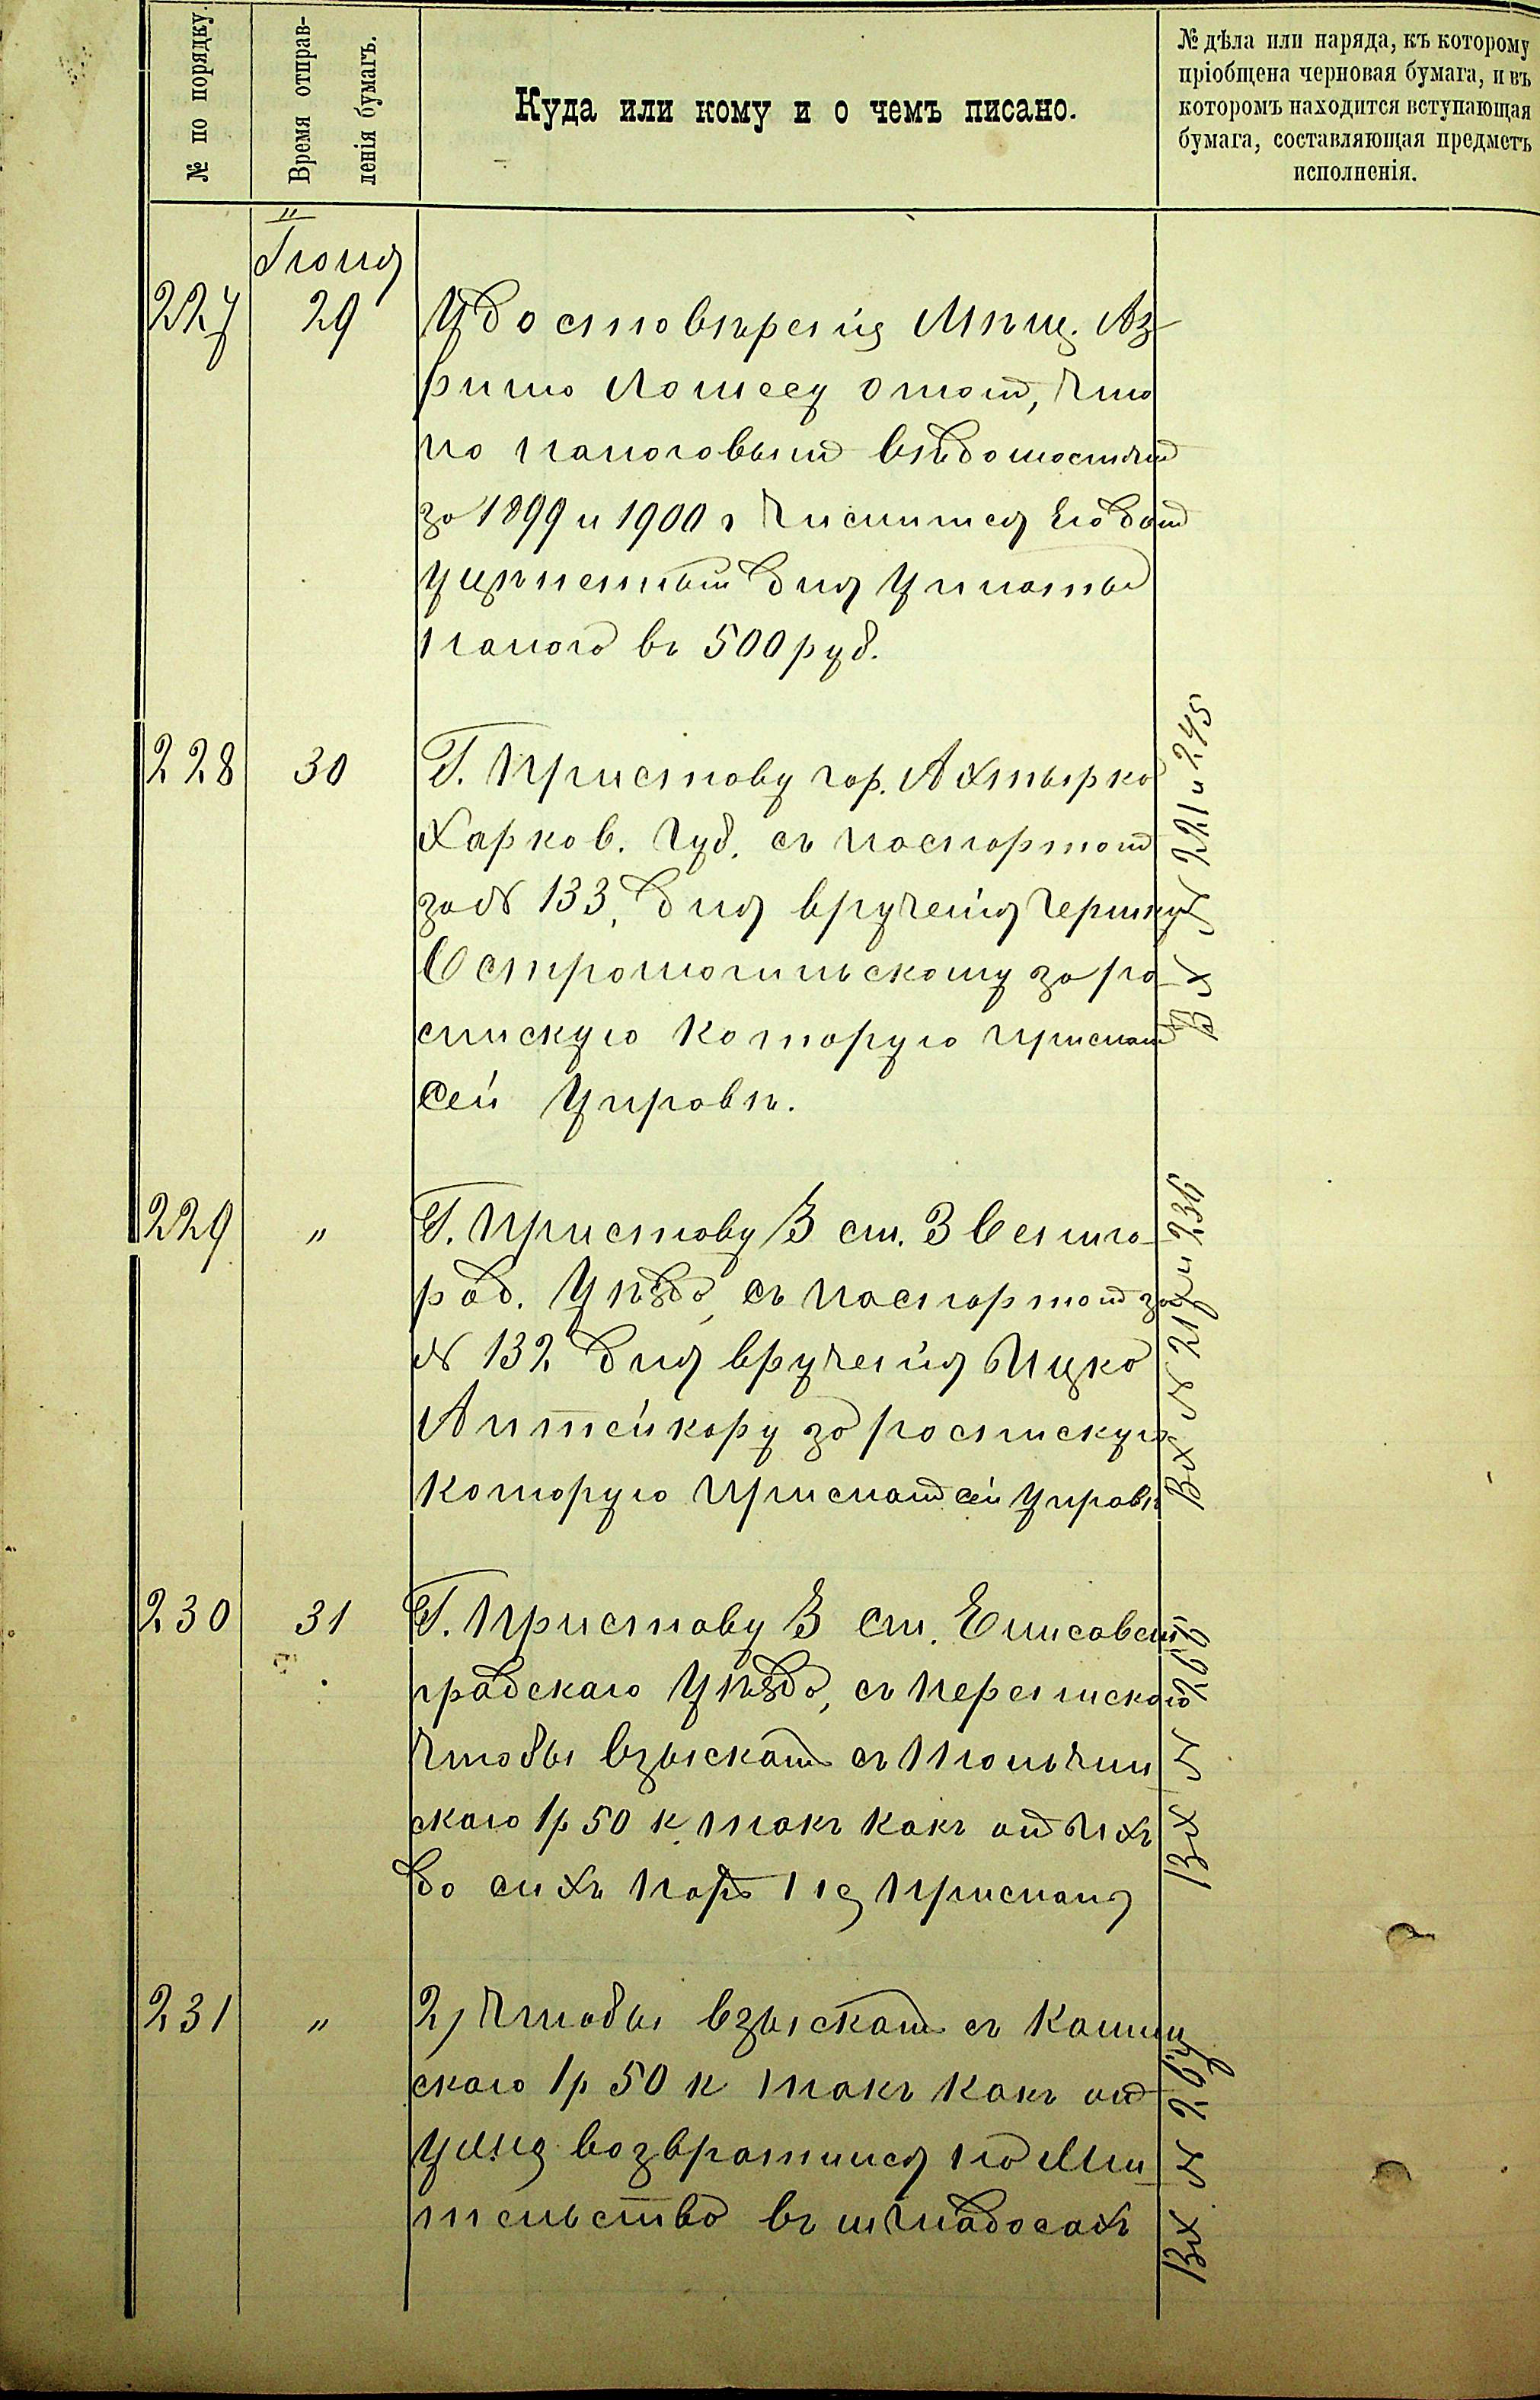 № по порядку.
Время отправ-
ленія бумагъ.
Куда или кому и о чемъ писано.
№ дѣла или наряда, къ которому
пріобщена черновая бумага, и въ
которомъ находится вступающая
бумага, составляющая предметъ
исполненія.
Іюля
227 29 Удостовѣреніе Мѣщ. Аз-
рилю о томъ, что
по налоговымъ вѣдомостямъ
за 1899 и 1900 г числится его домъ
уцѣненный для уплаты
налога въ 500 руб.
228 30 Г. Приставу гор. Ахтырка
Харков. Губ. съ паспортомъ
за № 133, для врученія Гершку
Остромогильскому за ро-
списку которую прислать
сей Управѣ.
Вх № 221 и 245
229 „ Г. Приставу 3 ст. Звениго-
род. Уѣзда, съ паспортомъ за
№ 132 для врученія Ицко
Аптейкару за росписку
которую прислать сей Управѣ
Вх № 217 и 236
230 31 Г. Приставу 3 ст. Елисавет
градскаго Уѣзда, съ перепискою
чтобы взыскать съ Тольчин
скаго 1 р 50 к такъ какъ отъ ихъ
до сихъ поръ не прислана
Вх № 266
231 „ 2) чтобы взыскать съ
скаго 1 р 50 к такъ какъ онъ
уже возвратился на Жи-
тельство въ
Вх № 267